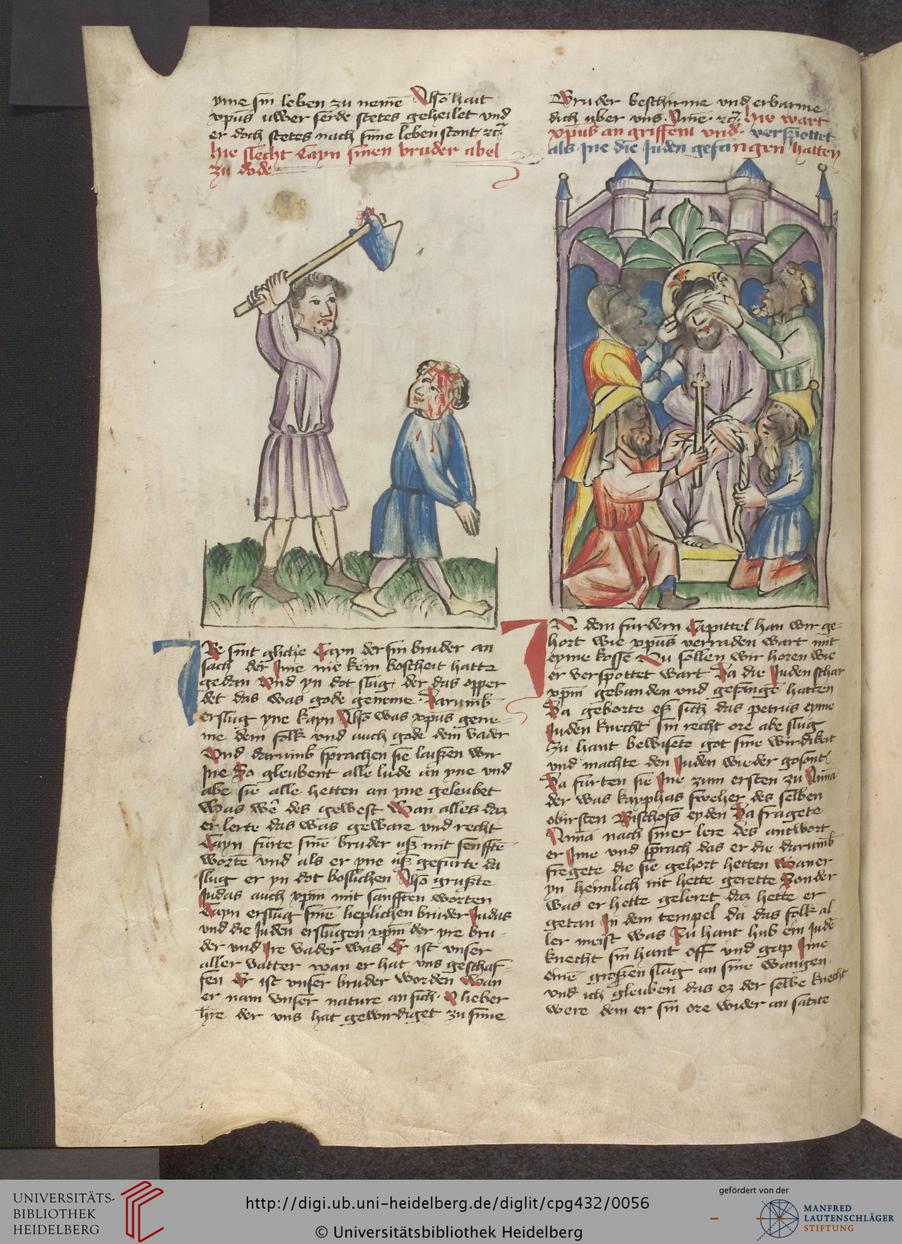 yme sin leben zu neme Also hait
xpus uwer serde stetes geheilet und
er doch stetes nach sime leben stont rc
hie slecht Cayn sinen bruder abel
zu dode
Die sint gliche Cayn der sin bruder an
sach der Ime nie kein bosheit hatte
gedan Und yn dot slug der das opper
det das was gode geneme Darumb
erslug yne kayn Also was xpus gene-
me dem folk und auch gode dem vader
Und darumb sprachen sie laßen wir
Ine So gleubent alle lude an yne und
abe sie alle hetten an yne geleubet
Was we des gewest Wan alles daz
er lerte das was geware und recht
Cayn furte sine bruder uß mit senffte
worte und als er yne uß gefurte da
slug er yn dot boslichen Also grußte
Judas auch xpm mit sanfften worten
Cayn erslug sine lieplichen bruder Judas
und die Juden erslugen xpm der yre bru-
der und Ire vader was Er ist unser
aller vatter wan er hat uns geschaf-
fen Er ist unser bruder worden Wan
er nam unser nature an sich O lieber
hre der uns hat gewirdiget zu sime
Bruder beschirme und erbarme
dich uber uns Ame rc hie wart
xpus an griffent und verspottet
als Ine die Juden gefangen hatten
IN dem furdern Capittel han wir ge-
hort wie xpus verraden wart mit
eyme kosse Nu sollen wir horen wie
er verspottet wart Da die Juden schar
xpm gebunden und gefange hatten
Da geborte eß sich das petrus eyme
Juden knecht sin recht ore abe slug
Zu hant bewisete got sine wirdikat
und machte den Juden wieder gesont
Da furten sie Ine zum ersten zu Anna
der was kayphas sweher des selben
obirsten Bischofs eyden Da fragete
Anna nach siner lere des antwort
er Ime und sprach das er die darumb
fregete die sie gehort hetten Waner
yn heimlich nit hette gerette Sonder
was er hette geleret daz hette er
getan In dem tempel da das folk al
ler meist was Zu hant hub ein Jude
knecht sin hant off und gap Ime
eine großen slag an sine wangen
und ich gleuben das ez der selbe knecht
were dem er sin ore wider an satzte
UNIVERSITÄTS-
BIBLIOTHEK
HEIDELBERG
http://digi.ub.uni-heidelberg.de/diglit/cpg432/0056
© Universitätsbibliothek Heidelberg
gefördert von der
MANFRED
LAUTENSCHLÄGER
STIFTUNG